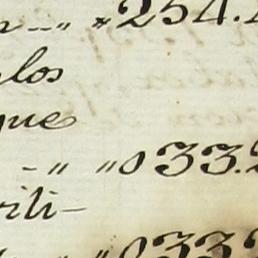 " " 254.
los
que
" " 033.2
rili-
" 033.2